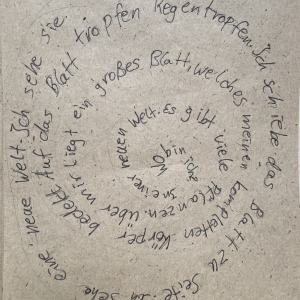 Wo bin ich? In einer neuen Welt. Es gibt viele Pflanzen. Über mir liegt ein großes Blatt, welches meinen kompletten Körper bedekt. Auf das Blatt tropfen Regentropfen. Ich schiebe das Blatt zu Seite. Ich sehe eine neue Welt. Ich sehe sie.